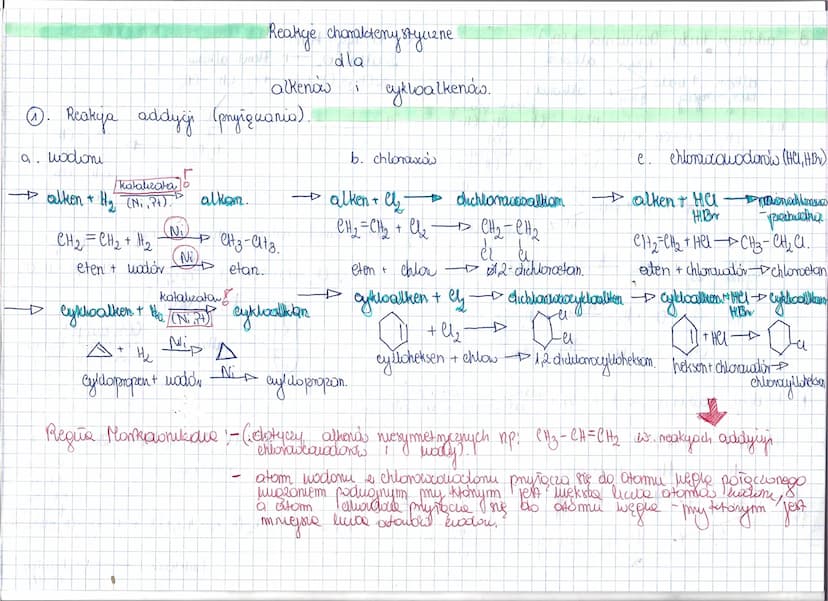 Reakcje charakterystyczne
dla
alkenów i cykloalkenów.
①. Reakcja addycji (przyłączania).
a. wodoru
→ alken + H₂ katalizator! (Ni, Pt) alkan.
CH₂=CH₂ + H₂ Ni → CH₃-CH₃.
eten + wodór Ni → etan.
→ cykloalken + H₂ katalizator! (Ni, Pt) cykloalkan
+ H₂ Ni →
cyklopropen + wodór Ni → cyklopropan.
b. chlorowców
→ alken + Cl₂ → dichlorowcoalkan
CH₂=CH₂ + Cl₂ → CH₂-CH₂
Cl Cl
eten + chlor → 1,2-dichloroetan.
→ cykloalken + Cl₂ → dichlorowcocykloalkan
+ Cl₂ → -Cl -Cl
cykloheksen + chlor → 1,2 dichlorocykloheksan.
c. chlorowcowodorów (HCl, HBr)
→ alken + HCl →
HBr
CH₂=CH₂ + HCl → CH₃-CH₂Cl.
eten + chlorowodór → chloroetan
→ cykloalken + HCl → cykloalkan
HBr
+ HCl → -Cl
heksen + chlorowodór →
chlorocykloheksan
Reguła Markownikowa: - (dotyczy alkenów niesymetrycznych np: CH₃-CH=CH₂ w reakcjach addycji
chlorowcowodorów i wody).
- atom wodoru z chlorowcowodoru przyłącza się do atomu węgla połączonego
wiązaniem podwójnym przy którym jest większa liczba atomów wodoru,
a atom chlorowca przyłącza się do atomu węgla - przy którym jest
mniejsza liczba atomów wodoru.